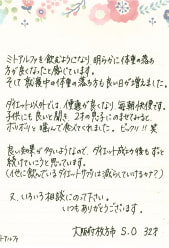 ミトアルファを飲むようになり 明らかに体重の落ち
方が良くなったと感じています。
そして就寝中の体重の落ち方も良い日が増えました。
ダイエット以外では、便通が良くなり 毎朝快便です。
子供にも良いと聞き、2才の男子にのませてみると
ポリポリと噛んで食べてくれました。ビックリ!! 笑
良い結果が多いようなので、ダイエット成功後もずっと
続けていこうと思っています。
(他に飲んでいるダイエットサプリは減らしていけるかナ?)
又、いろいろ相談にのって下さい。
いつもありがとうございます。
大阪府枚方市 S.O 32才